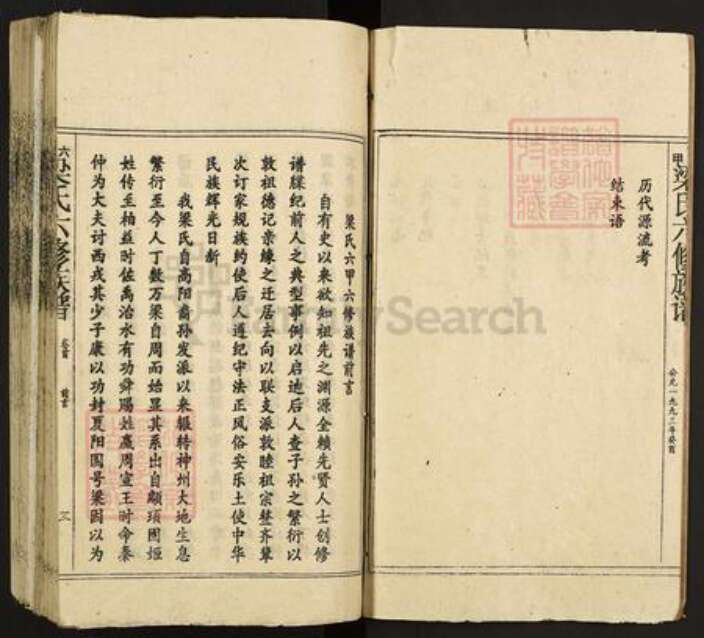 历代源流考
结束语
梁氏六修族谱
公元一九九三年癸酉
梁氏六甲六修族谱前言
自有史以来欲知祖先之渊源全赖先贤人士创修
谱牒纪前人之典型事例以启迪后人查子孙之繁衍以
敦祖德记亲缘之迁居去向以联支派敦睦祖宗整齐辈
次订家规族约使后人遵纪守法正风俗安乐土使中华
民族辉光日新
我梁氏自高阳裔孙发派以来辗转神州大地生息
繁衍至今人丁数万梁自周而始显其系出自颛顼因姬
姓传至柏益时佐禹治水有功舜赐姓嬴周宣王时命秦
仲为大夫讨西戎其少子康以功封夏阳国号梁因以为
梁氏六修族谱
卷首
前言
三
Search